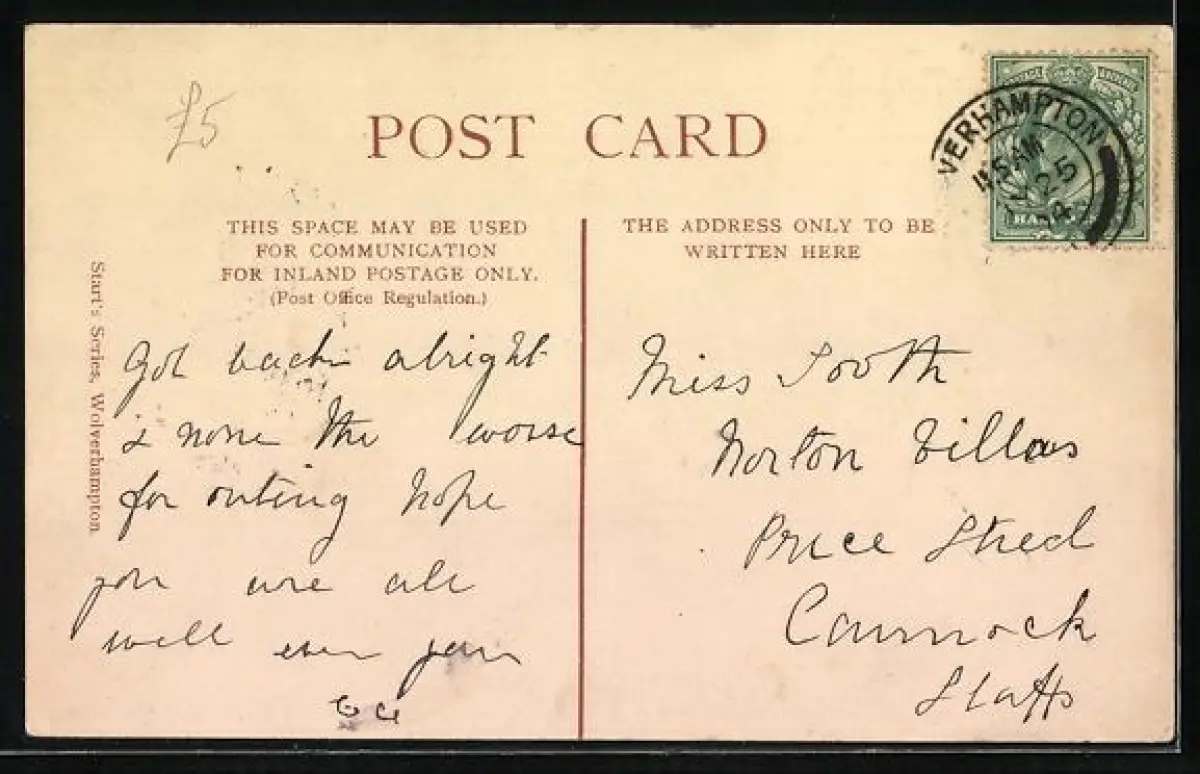 £5
POST CARD
VERHAMPTON
25
THIS SPACE MAY BE USED
FOR COMMUNICATION
FOR INLAND POSTAGE ONLY.
(Post Office Regulation.)
THE ADDRESS ONLY TO BE
WRITTEN HERE
Start's Series, Wolverhampton
Got back alright
& none the worse
for outing hope
you are all
well ever your
Miss Tooth
Norton Villas
Price Street
Cannock
Staffs